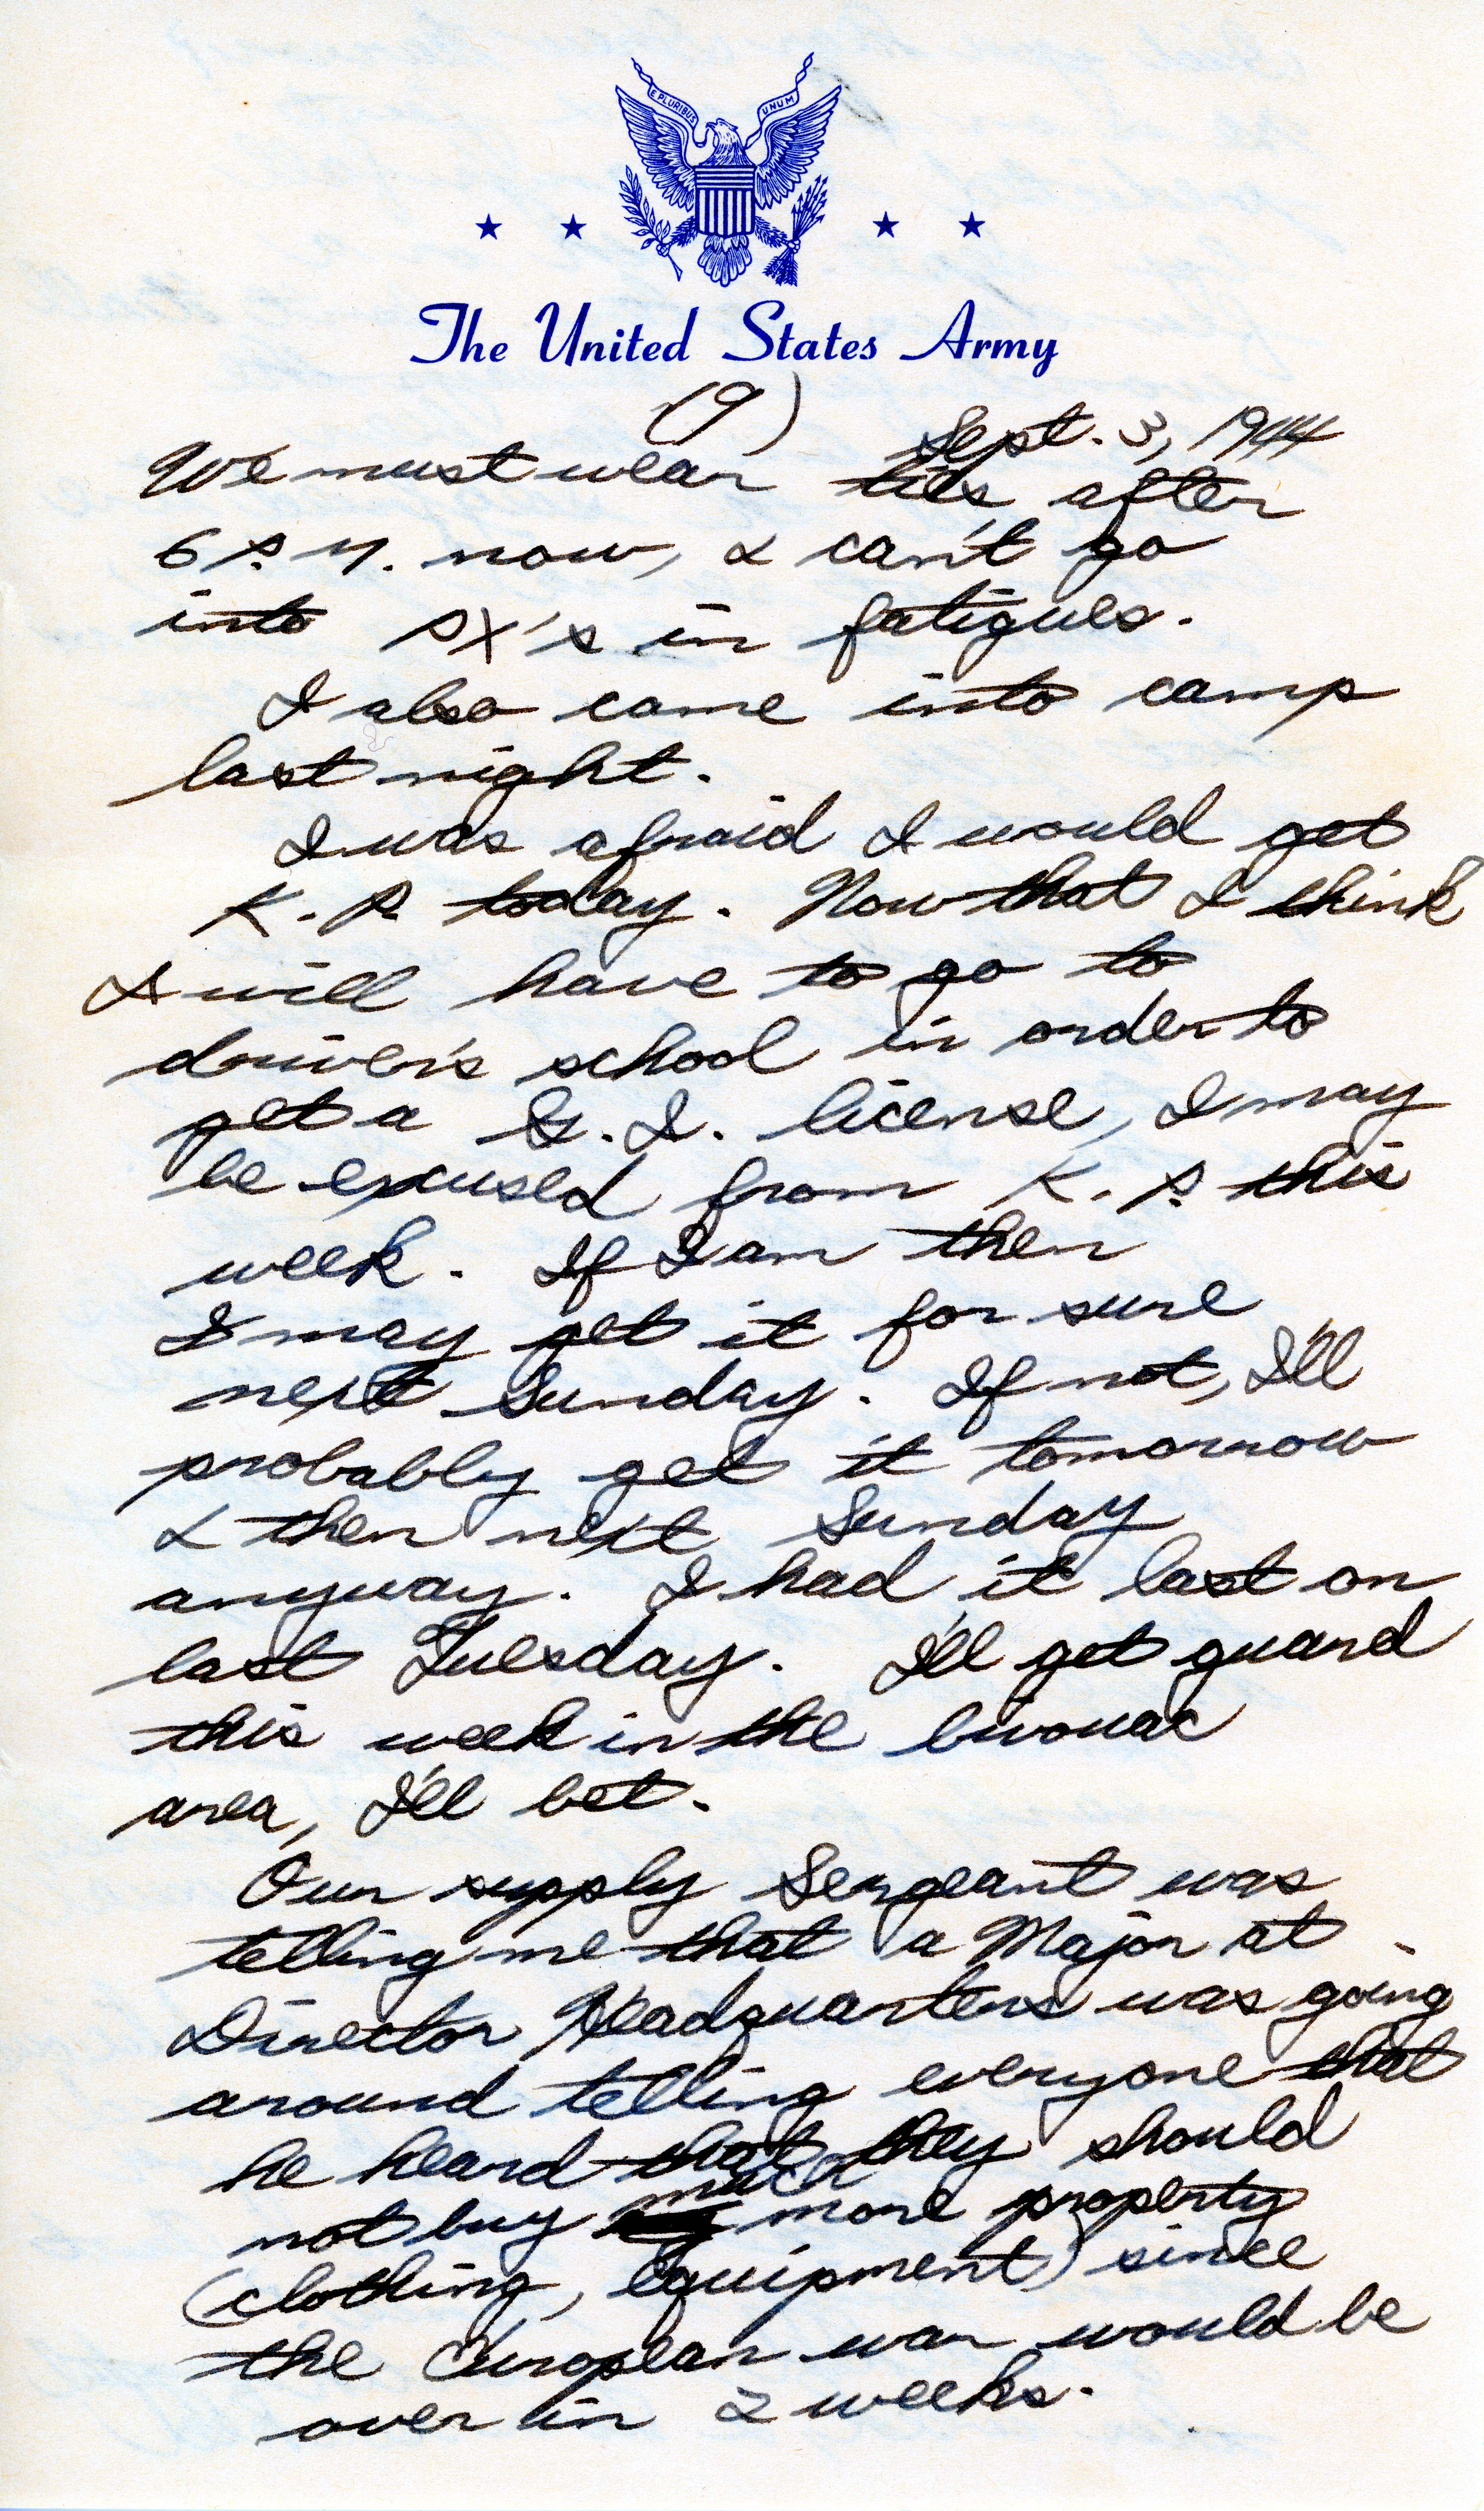 E PLURIBUS UNUM
The United States Army
(9)
Sept. 3, 1944
We must wear ties after
6 P.M. now, & can't go
into PX's in fatigues.
I also came into camp
last night.
I was afraid I would get
K.P. today. Now that I think
I will have to go to
driver's school in order to
get a G.I. license, I may
be excused from K.P. this
week. If I am then
I may get it for sure
next Sunday. If not, I'll
probably get it tomorrow
& then next Sunday
anyway. I had it last on
last Tuesday. I'll get guard
this week in the bivouac
area, I'll bet.
Our supply Sergeant was
telling me that a Major at
Director Headquarters was going
around telling everyone that
he heard that they should
not buy much more property
(clothing, equipment) since
the European war would be
over in 2 weeks.